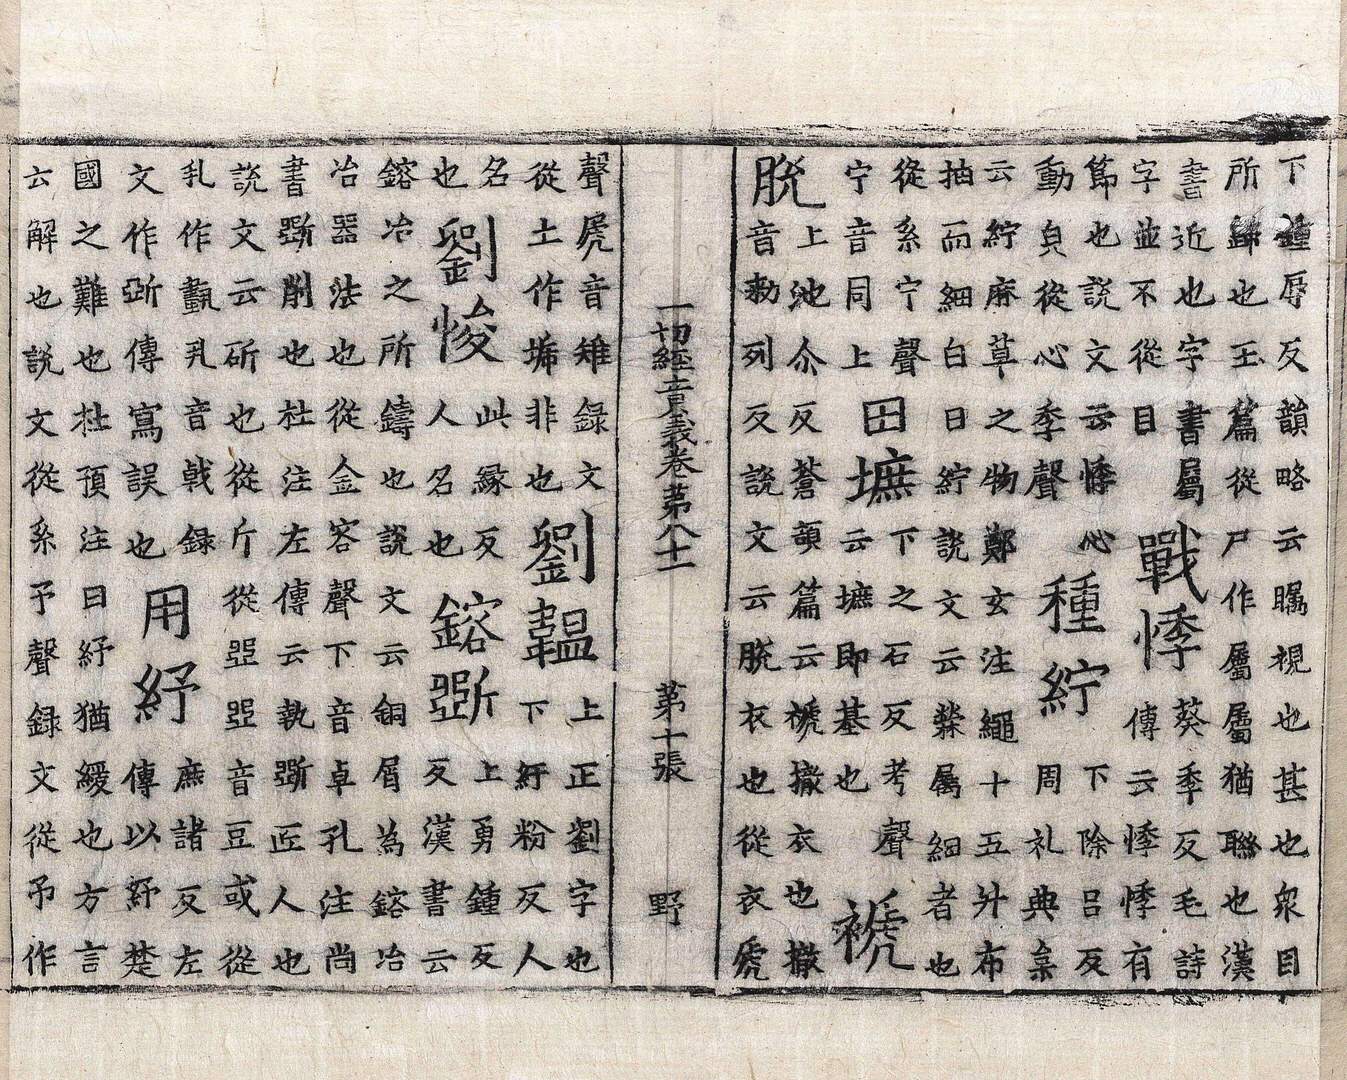 下鍾辱反韻略云矚視也甚也衆目
所歸也玉篇從尸作屬屬猶聯也漢
書近也字書屬
字並不從目
戰悸
葵季反毛詩
傳云悸悸有
節也說文云悸心
動皃從心季聲
種紵
下除呂反
周礼典枲
云紵麻草之物鄭玄注繩十五升布
抽而細白曰紵說文云檾属細者也
從糸宁聲
宁音同上
田墌
下之石反考聲
云墌即基也
褫
脫
上池尒反蒼頡篇云褫撤衣也撤
音勑列反說文云脫衣也從衣虒
一切經音義卷第八十一 第十張 野
聲虒音雉録文
從土作非也
劉韞
上正劉字也
下紆粉反人
名
也
劉悛
此縁反
人名也
鎔斵
上勇鍾反
反漢書云
鎔冶之所鑄也說文云銅屑為鎔冶
冶器法也從金容聲下音卓孔注尚
書斵削也杜注左傳云執斵匠人也
說文云斫也從斤從㔽㔽音豆或從
丮作丮音戟録
文作傳寫誤也
用紓
庶諸反左
傳以紓楚
國之難也杜預注曰紓猶緩也方言
云解也說文從糸予聲録文從予作